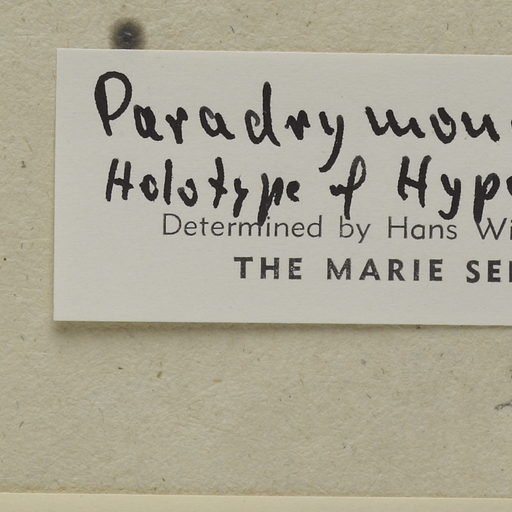 Paradrymon
Holotype of Hyp
Determined by Hans Wi
THE MARIE SE